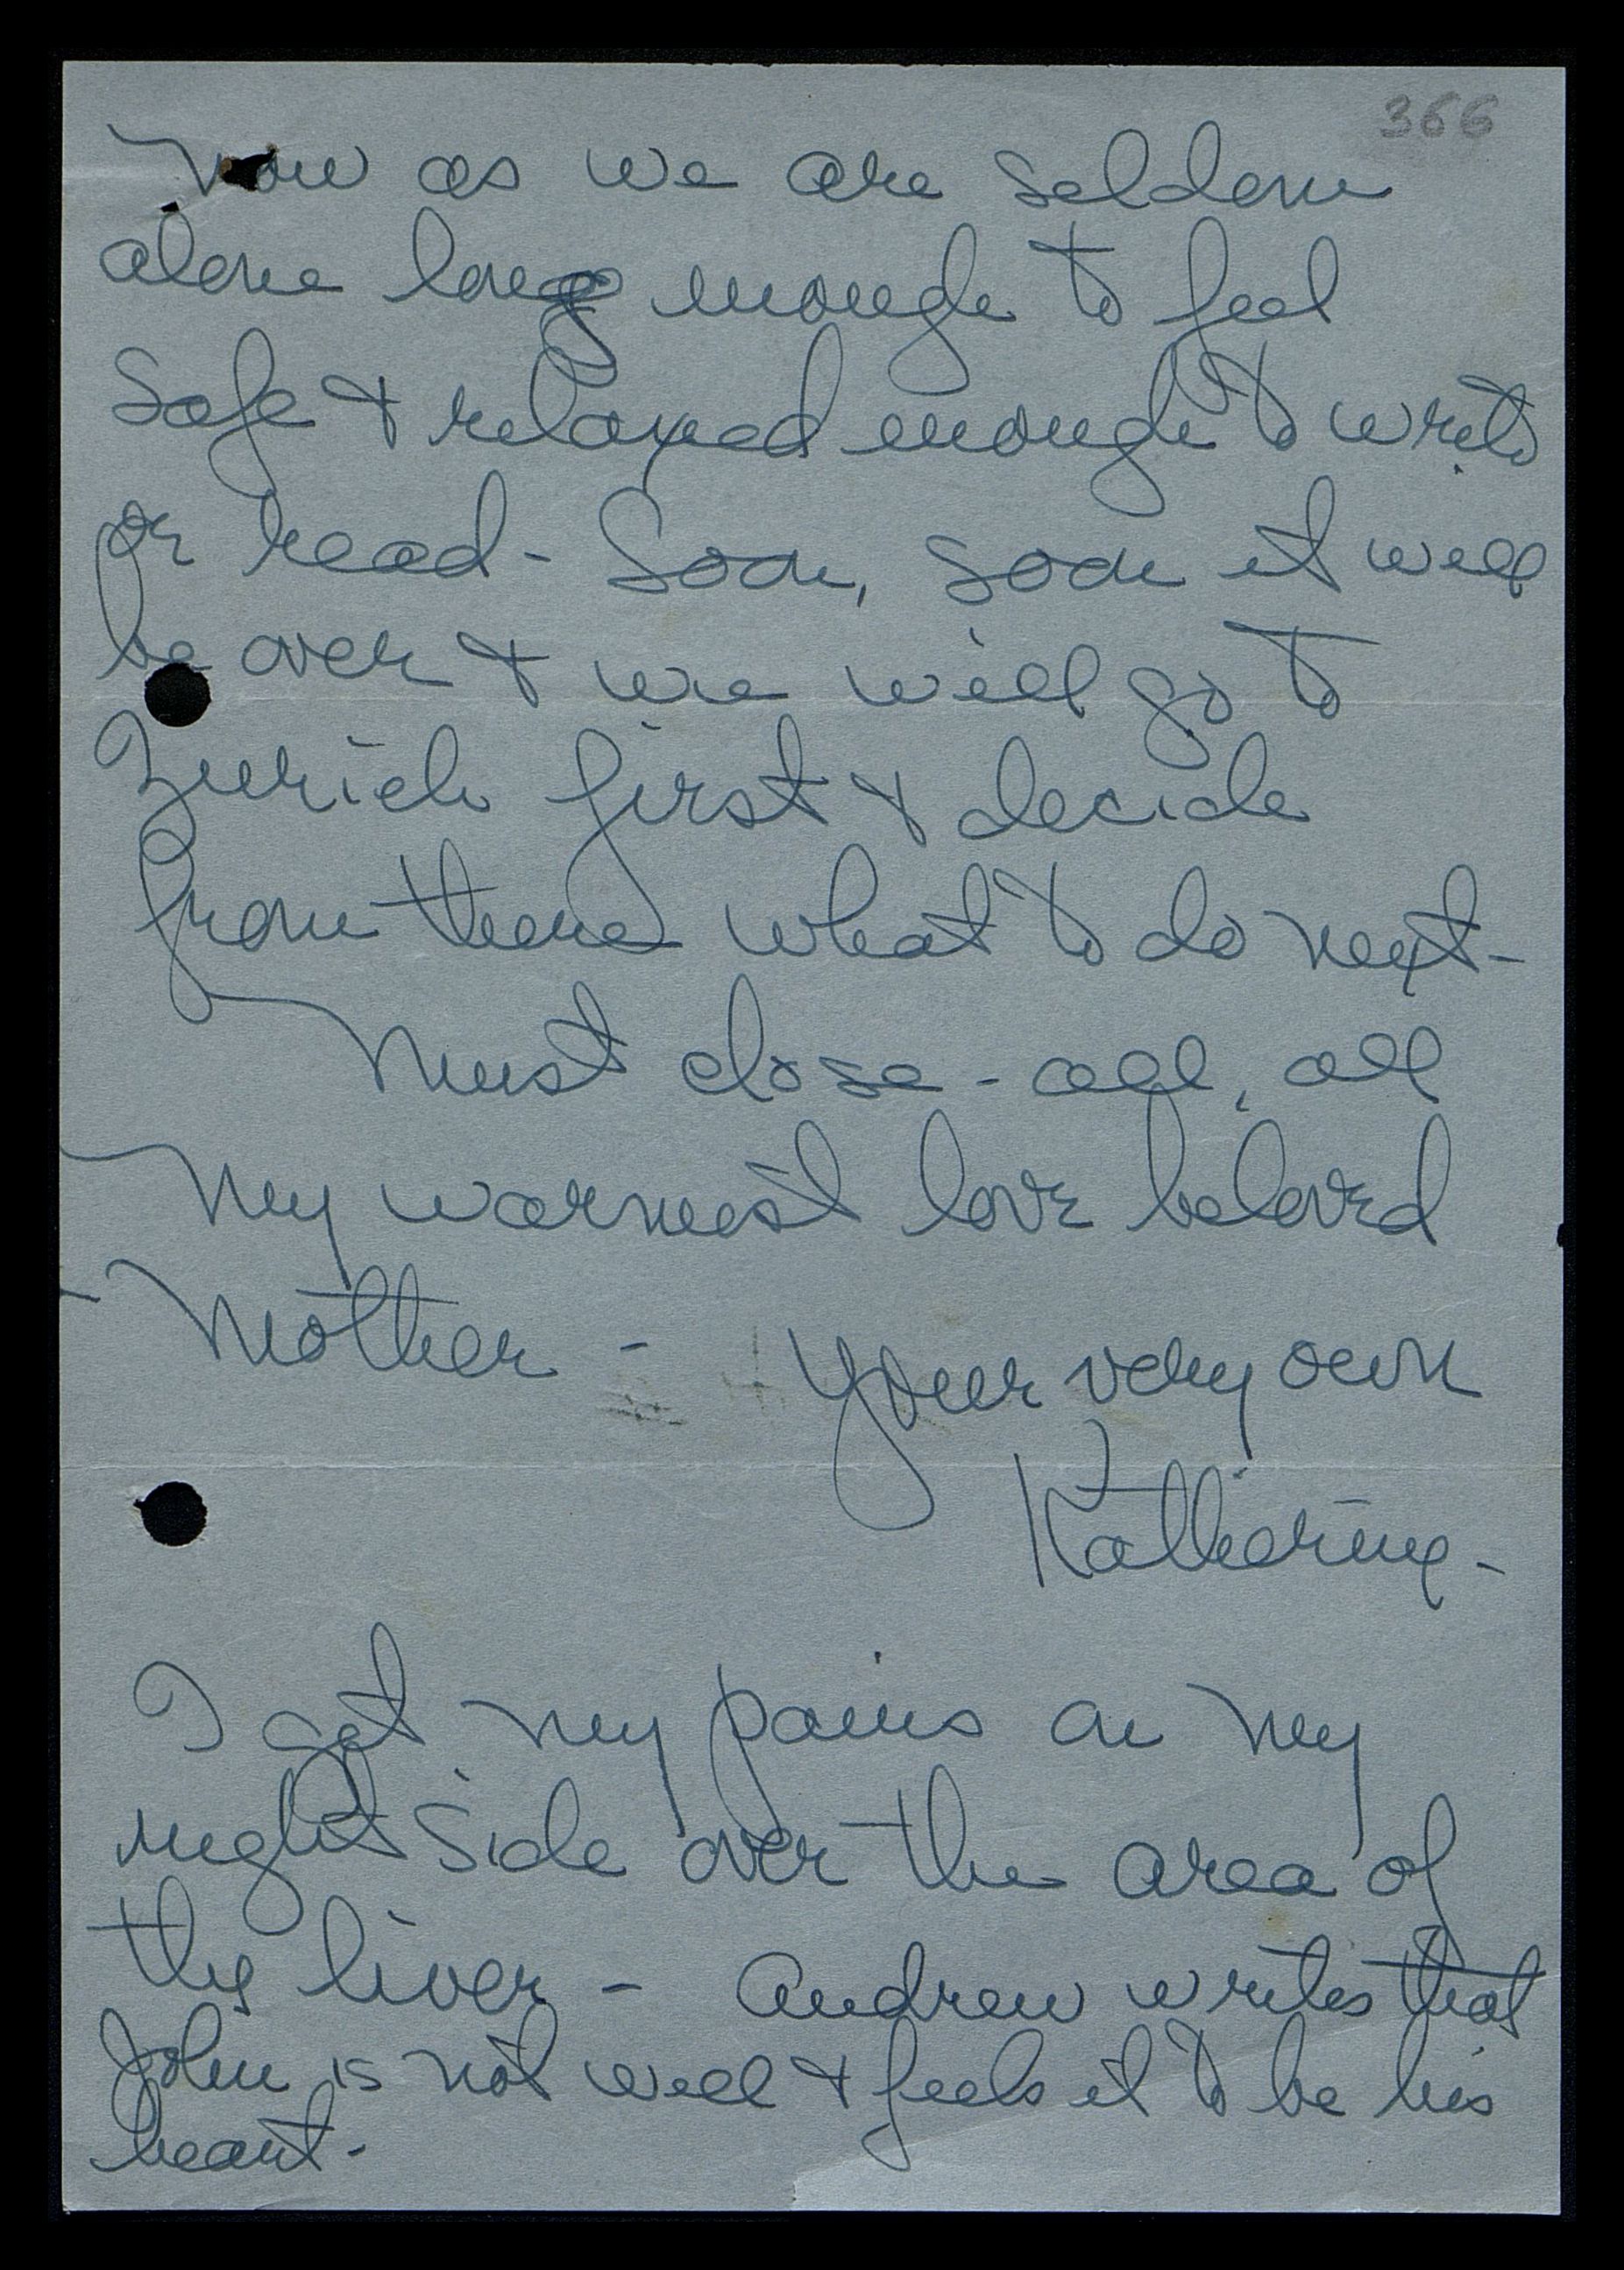 366
now as we are seldom
alone long enough to feel
safe & relaxed enough to write
or read - Soon, soon it will
be over & we will go to
Zurich first & decide
from there what to do next -
Must close - all, all
my warmest love beloved
Mother - Your very own
Katherine -
I get my pains on my
right side over the area of
the liver - Andrew writes that
John is not well & feels it to be his
heart -